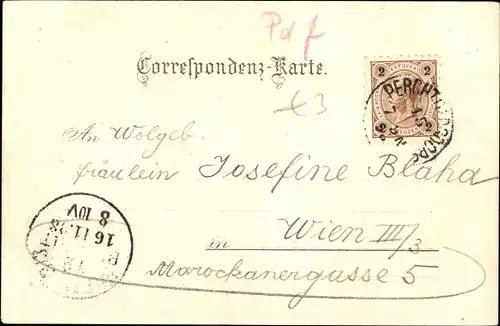 Pd f
Correspondenz-Karte.
2 2
PERCHTOLDSDORF
£3
An Wolgeb.
Fräulein Josefine Blaha
Wien III/3
in
Marockanergasse 5
8 10V
16 11.98